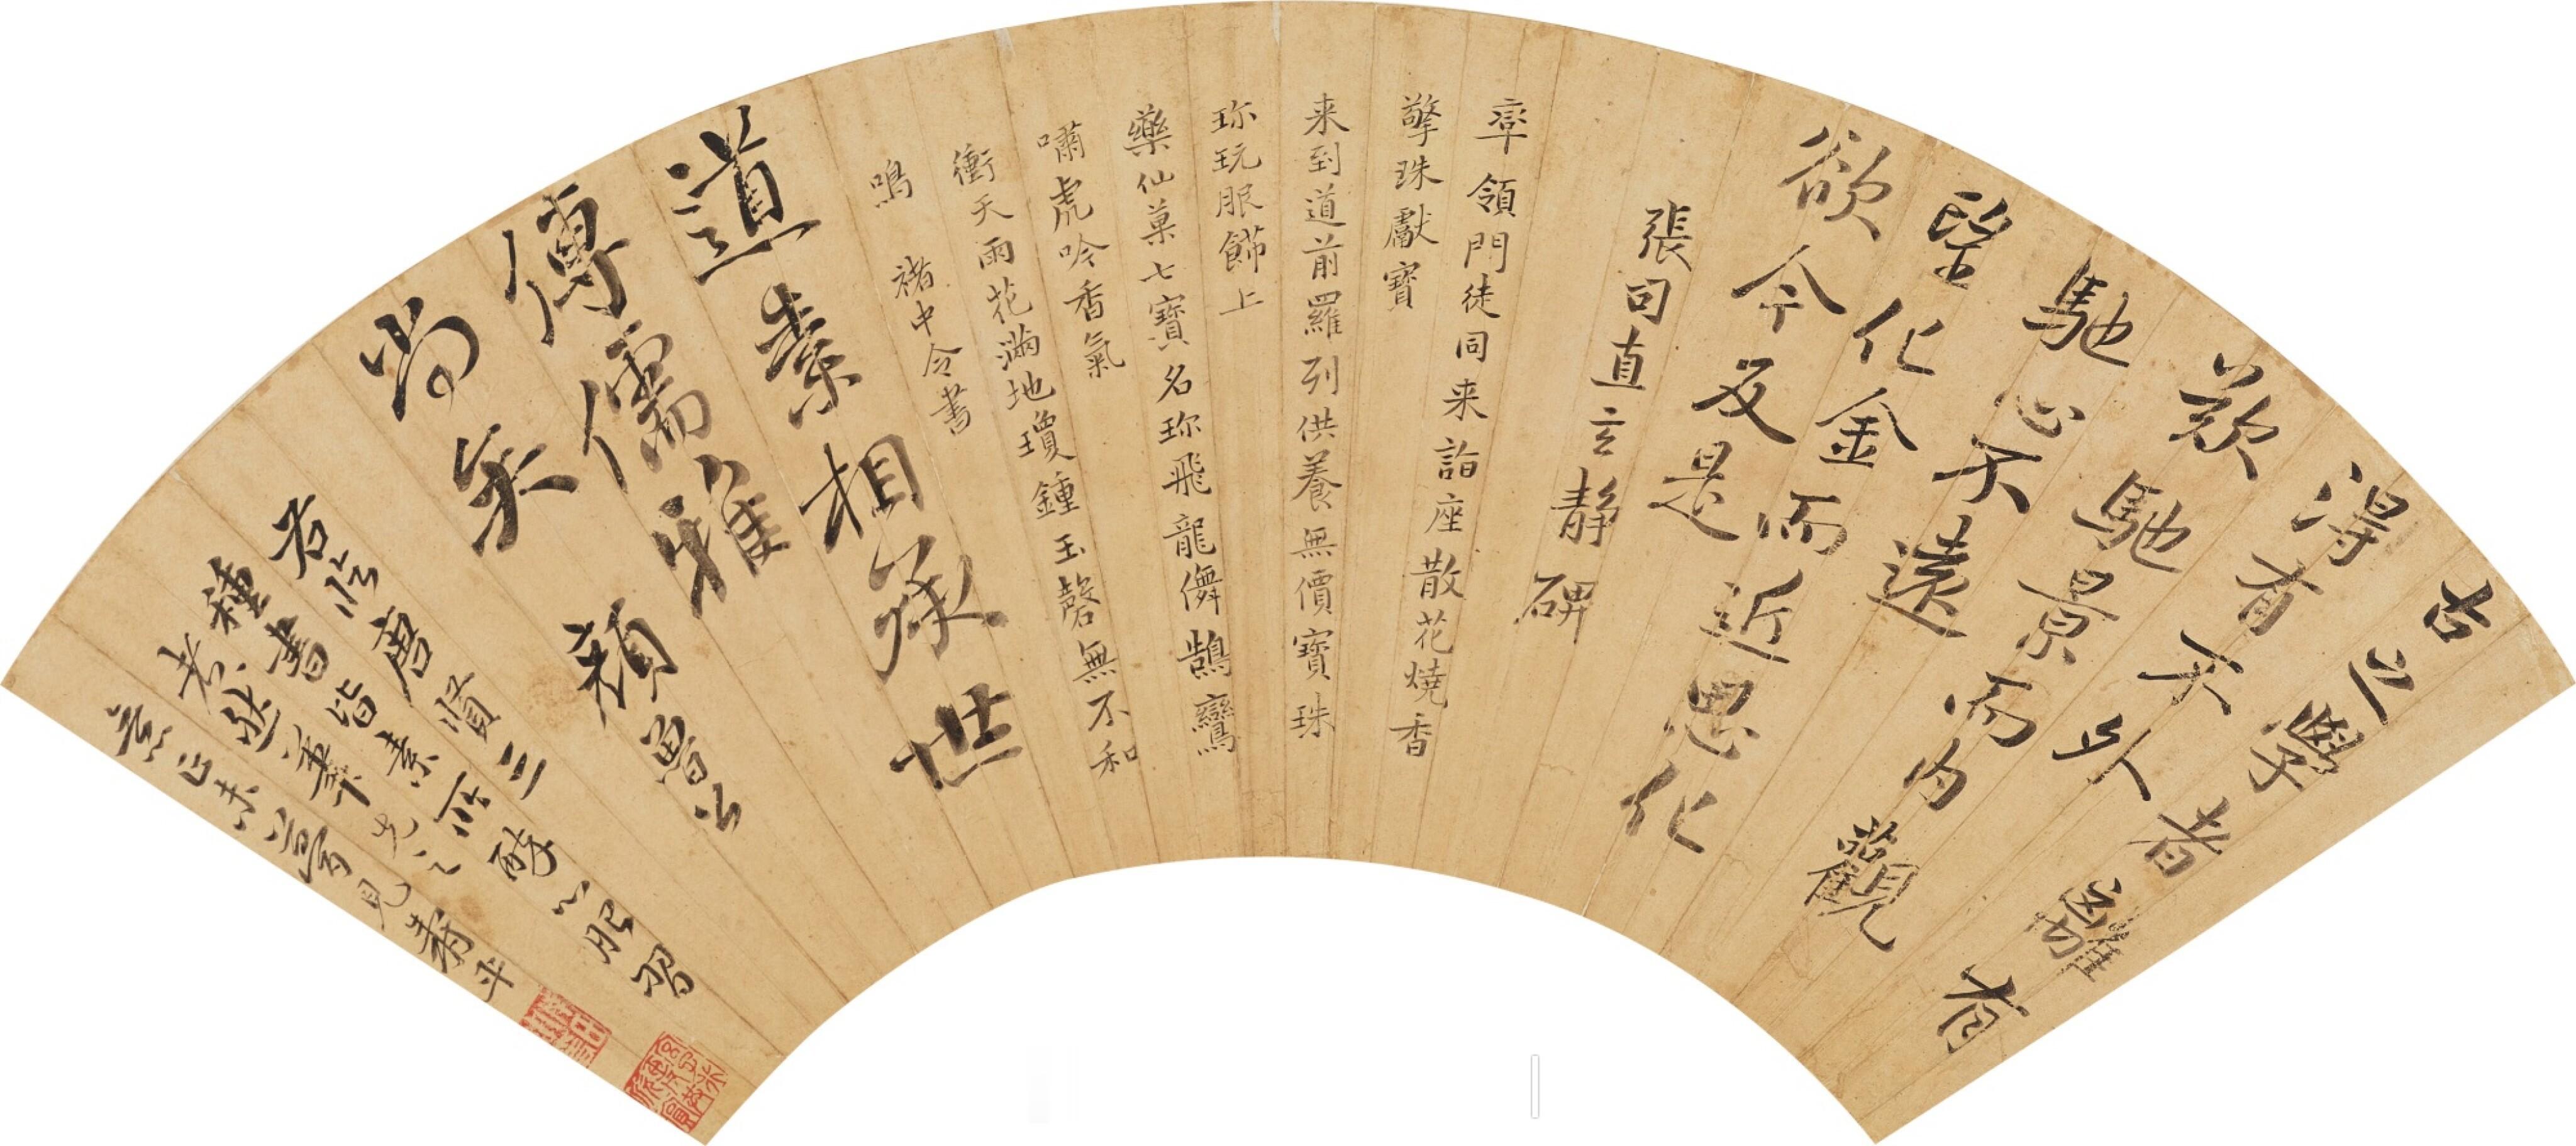 古之學者難有
淂有不以
馳景而内觀
馳心不遠
望化金而近思化
欲今反是
張司直玄靜碑
率領門徒同来詣座散花燒香
擎珠獻寶
来到道前羅列供養無價寶珠
珎玩服餙上
藥仙菓七寶名珎飛龍儛鵠鸞
嘯虎吟香氣
衝天雨花滿地瓊鍾玉磬無不和
鳴 褚中令書
道素相承世
傳儒雅
尚矣 顏魯公
右臨唐蹟三
種書皆素所習
壽平